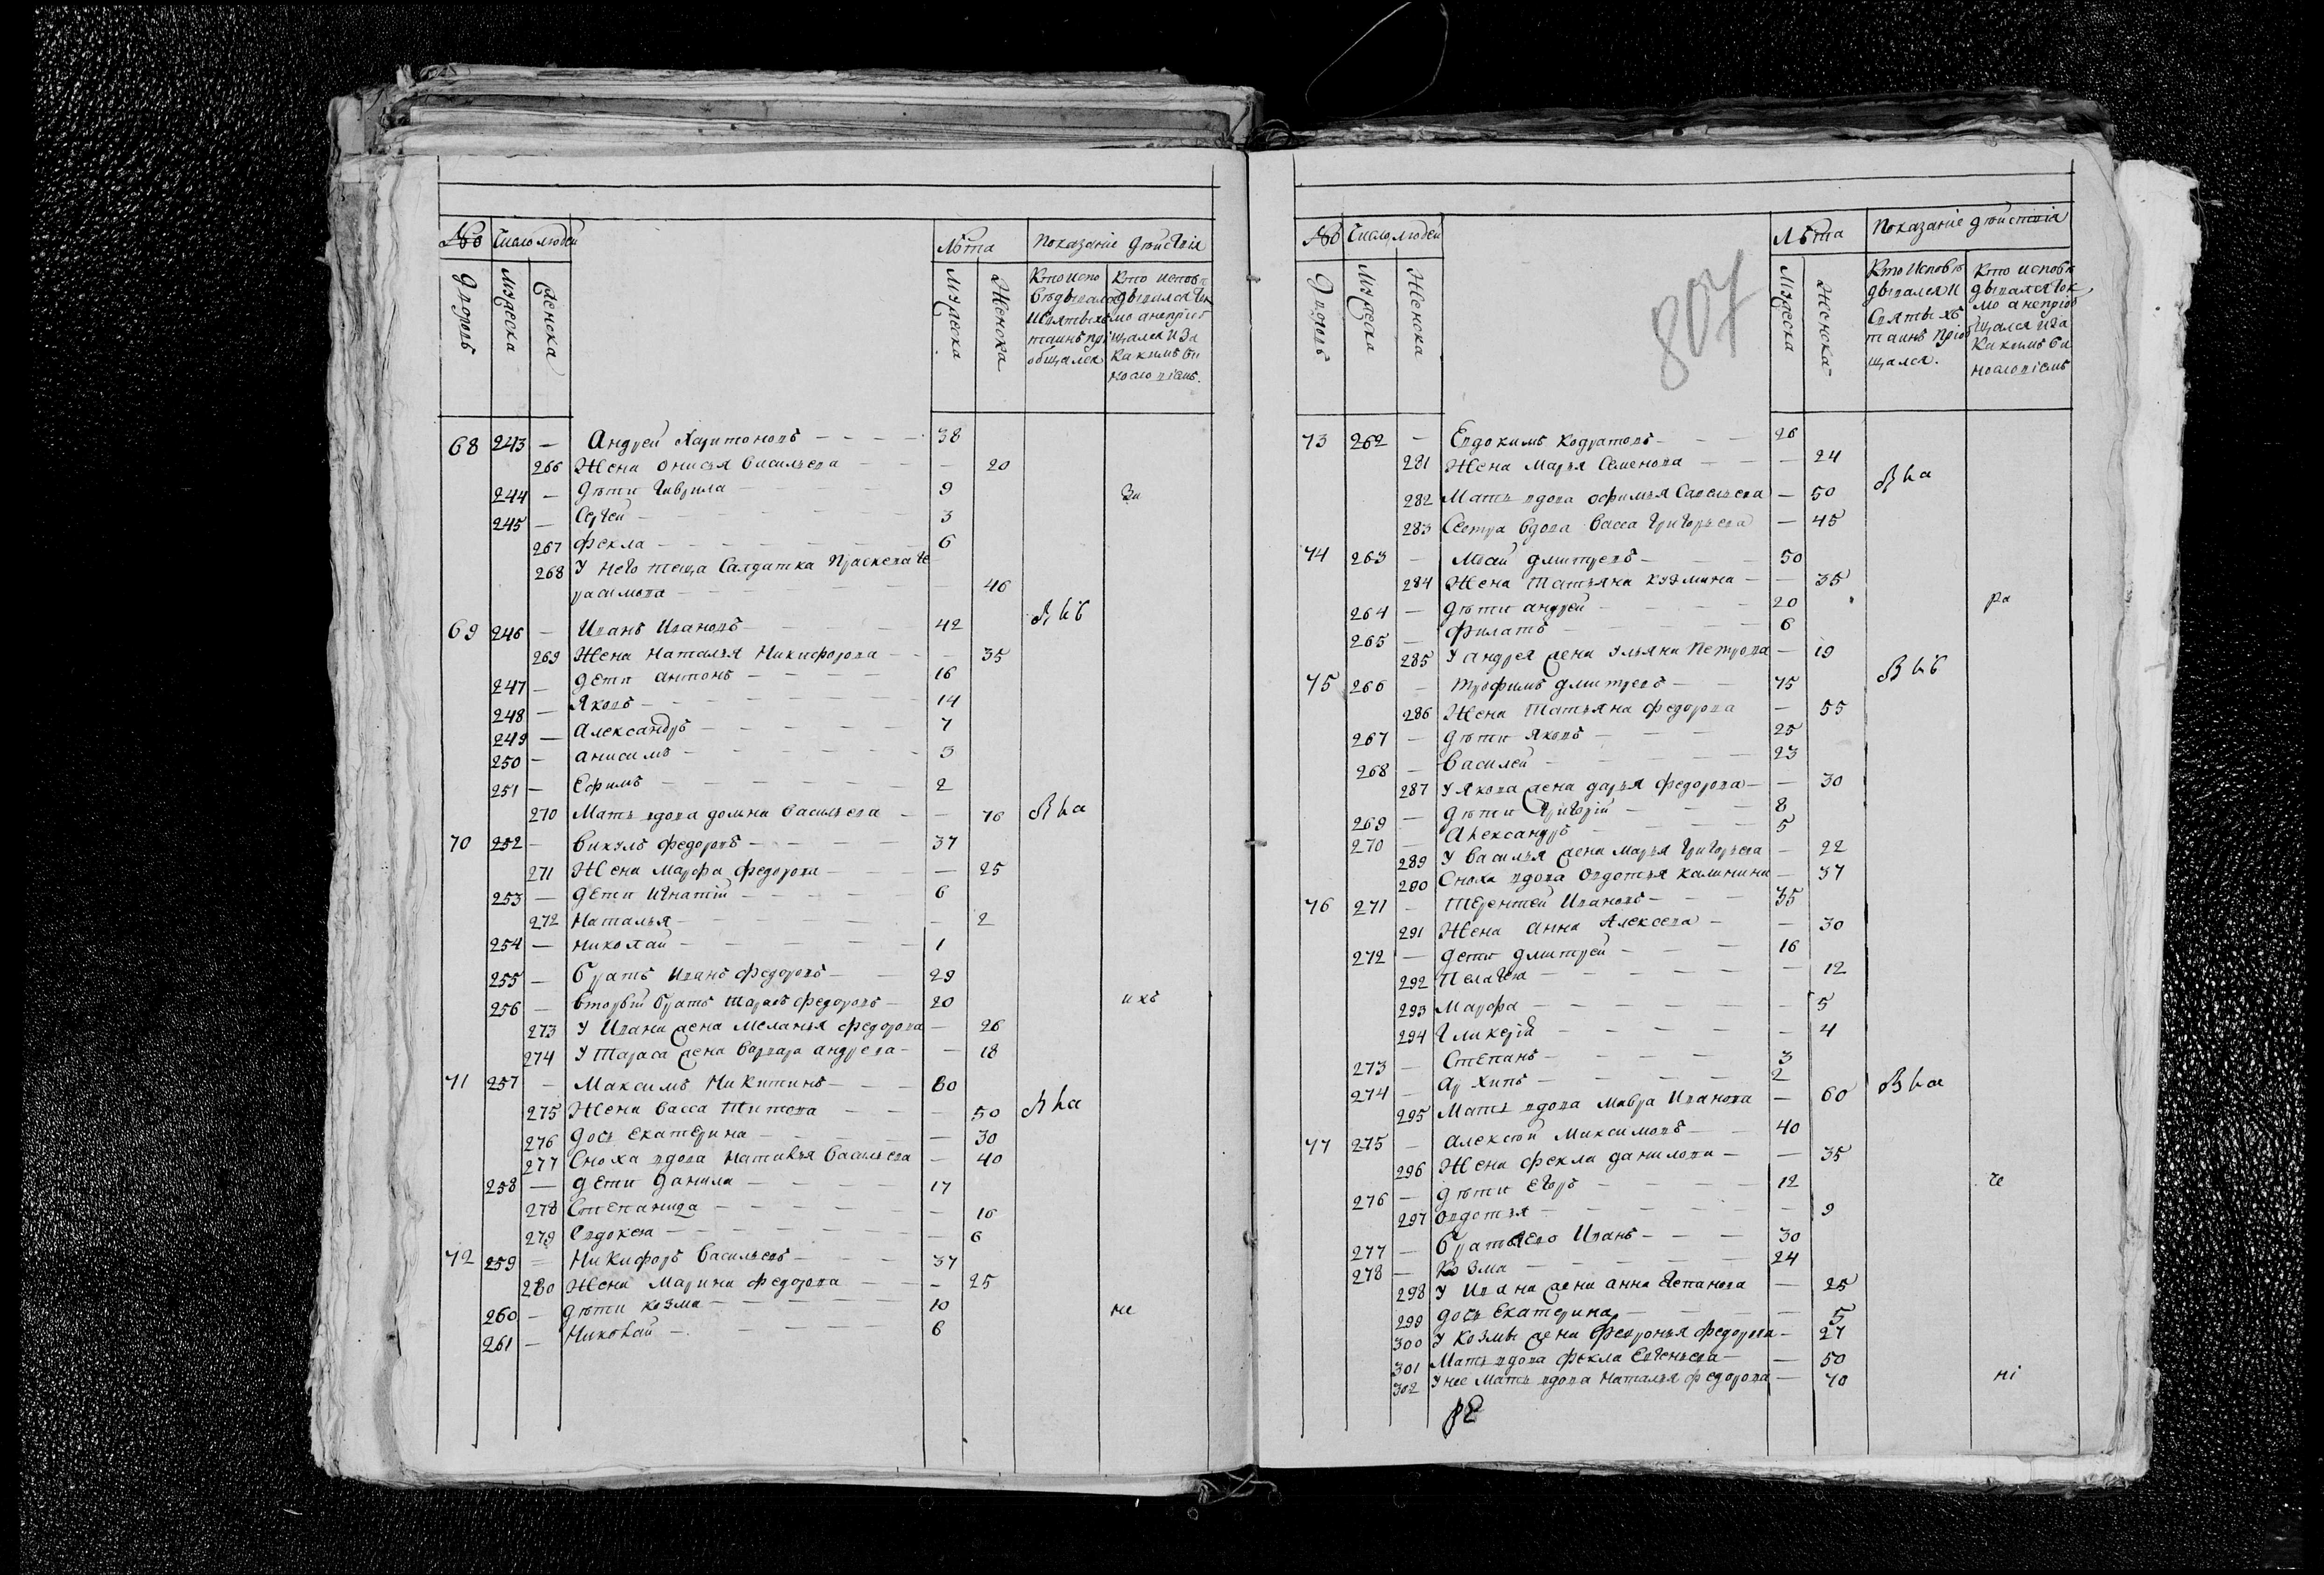 № Число людей Лѣта Показаніе дѣйствія
Дворовъ Мужеска Женска Мужеска Женска
Кто испо Кто исповѣ
вѣдывался дывался ток
и святыхъ мо а непріоб
таинъ прі щался и за
общался какимъ ви
нословіемъ.
68 243 — Андрей Харитоновъ — 38
266 Жена Онисья Васильева — 20
244 — Дѣти Гаврила — 9
245 — Сергей — 3
267 Фекла — 6
268 У него теща Салдатка Прасковья Ге
расимова — 46
69 246 — Иванъ Ивановъ — 42
269 Жена Наталья Никифорова — 35
247 — Дети Антонъ — 16
248 — Яковъ — 14
249 — Александръ — 7
250 — Анисимъ — 3
251 — Ефимъ — 2
270 Мать вдова Домна Васильева — 76
70 252 — Викулъ Федоровъ — 37
271 Жена Марфа Федорова — 25
253 — Дети Игнатій — 6
272 Наталья — 2
254 — Николай — 1
255 — Братъ Иванъ Федоровъ — 29
256 — Вторый братъ Тарасъ Федоровъ — 20 ихъ
273 У Ивана жена Меланья Федорова — 26
274 У Тараса жена Варвара Андреева — 18
71 257 — Максимъ Никитинъ — 60
275 Жена Васса Титова — 50
276 Дочь Екатерина — 30
277 Сноха вдова Наталья Васильева — 40
258 — Дети Данила — 17
278 Степанида — 16
279 Евдокея — 6
72 259 = Никифоръ Васильевъ — 37
280 Жена Марина Федорова — 25
260 — Дѣти Козма — 10 не
261 — Николай — 6
807
№ Число людей Лѣта Показаніе дѣйствія
Дворовъ Мужеска Женска Мужеска Женска
Кто исповѣ Кто исповѣ
дывался и дывался ток
святыхъ мо а непріоб
таинъ пріоб щался и за
щался. какимъ ви
нословіемъ
73 262 — Евдокимъ Кодратовъ — 26
281 Жена Марья Семенова — 24
282 Мать вдова Офимья Савельева — 50
283 Сестра вдова Васса Григорьева — 45
74 263 — Дмитревъ — 50
284 Жена Татьяна Кузмина — 35
264 — Дѣти Андрей — 20 ра
265 — Филатъ — 6
285 У Андрея жена Ульяна Петрова — 19
75 266 — Трофимъ Дмитревъ — 75
286 Жена Татьяна Федорова — 55
267 — Дѣти Яковъ — 25
268 — Василей — 23
287 У Якова жена Дарья Федорова — 30
269 — Дѣти Григорій — 8
270 — Александръ — 5
289 У Василья жена Марья Григорьева — 22
290 Сноха вдова Овдотья Калинина — 37
76 271 — Терентей Ивановъ — 35
291 Жена Анна Алексеева — 30
272 — Дети Дмитрей — 16
292 Пелагея — 12
293 Марфа — 5
294 Гликерія — 4
273 — Степанъ — 3
274 — Архипъ — 2
295 Мать вдова Мавра Иванова — 60
77 275 — Алексѣй Максимовъ — 40
296 Жена Фекла Данилова — 35
276 — Дѣти Егоръ — 12 че
297 Овдотья — 9
277 — Братья его Иванъ — 30
278 — Козма — 24
298 У Ивана жена Анна Степанова — 25
299 Дочь Екатерина — 5
300 У Козмы жена Февронья Федорова — 27
301 Мать вдова Фекла Евгеньева — 50
302 У нее Мать вдова Наталья Федорова — 70 ні